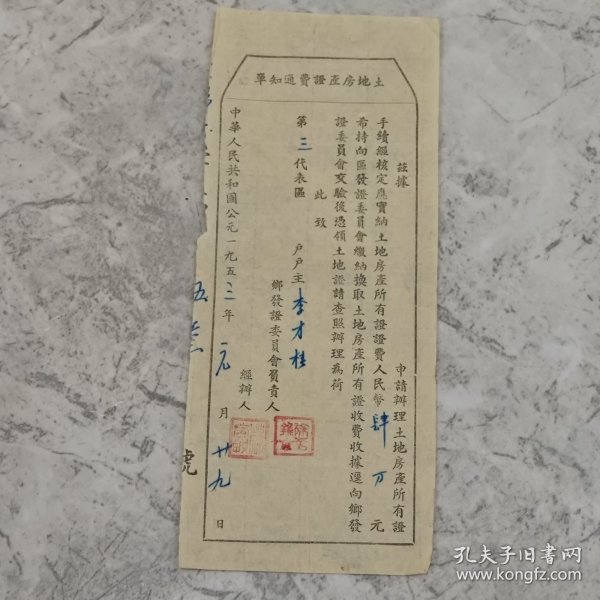 土地房產證費通知單
茲據　　　　申請辦理土地房產所有證
手續經核定應實納土地房產所有證證費人民幣肆万元
希持向區發證委員會繳納換取土地房產所有證收費收據還向鄉發
證委員會交驗後憑領土地證請查照辦理為荷
此致
第三代表區　　戶戶主李才桂
鄉發證委員會負責人
經辦人
中華人民共和國公元一九五三年元月廿九日
號
孔夫子旧书网
www.kongfz.com